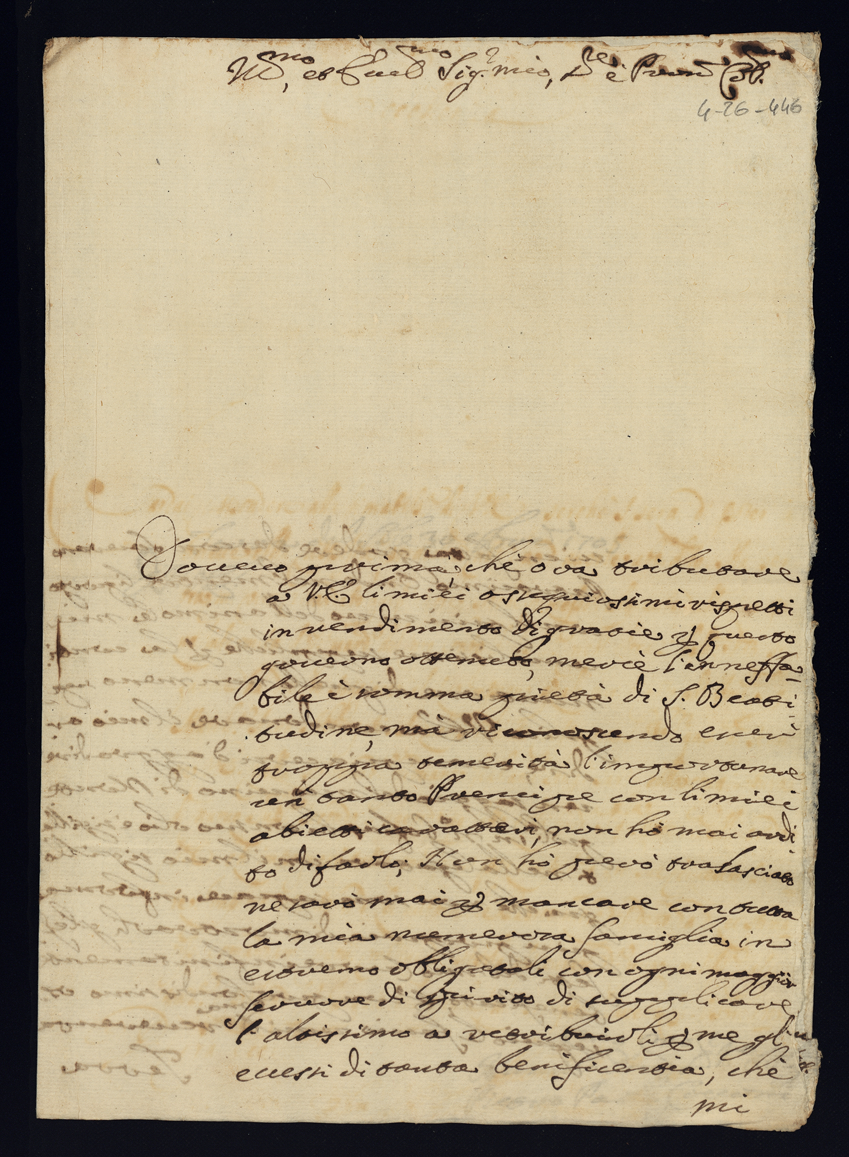 Ill.mo, et Ecc.mo Sig.r mio, P.ne è Pron Col.mo
4-26-446
Doueuo prima, chè ora tributare
a V.E. li miei ossequiosi miei rispetti
in rendimento di grazie p questo
gouerno ottenuto, mercè l'inneffa-
bile è somma pietà di S. Beati-
tudine, mà riconoscendo esser
troppa temerità l'importunare
un tanto Prencipe con li miei
abietti caratteri, non hò mai ardi
to di farlo; Non hò però tralasciato
ne sarò mai p mancare con tutta
la mia numerosa famiglia in
estremo obligatale con ogni maggior
feruore di spirito di supplicare
l'altissimo a retribuirli p me gl'
ecessi di tanta beneficenza, chè
mi